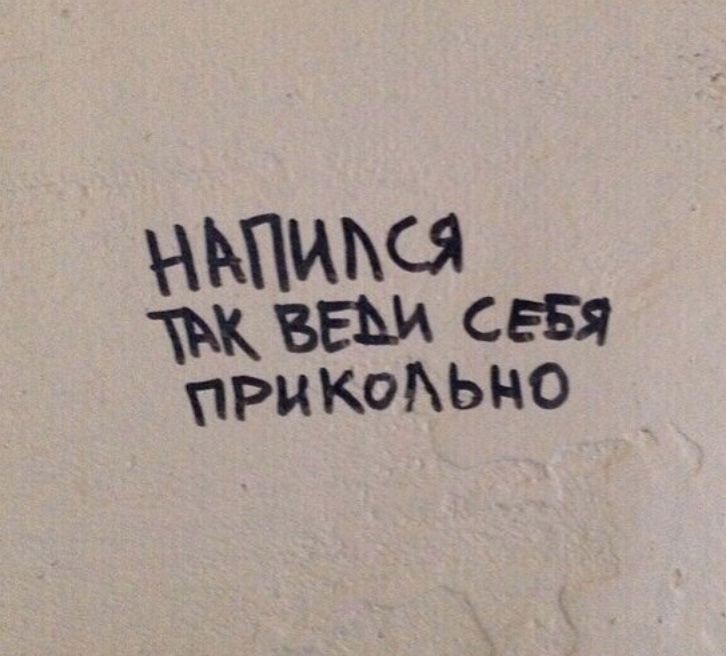 НАПИЛСЯ
ТАК ВЕДИ СЕБЯ
ПРИКОЛЬНО